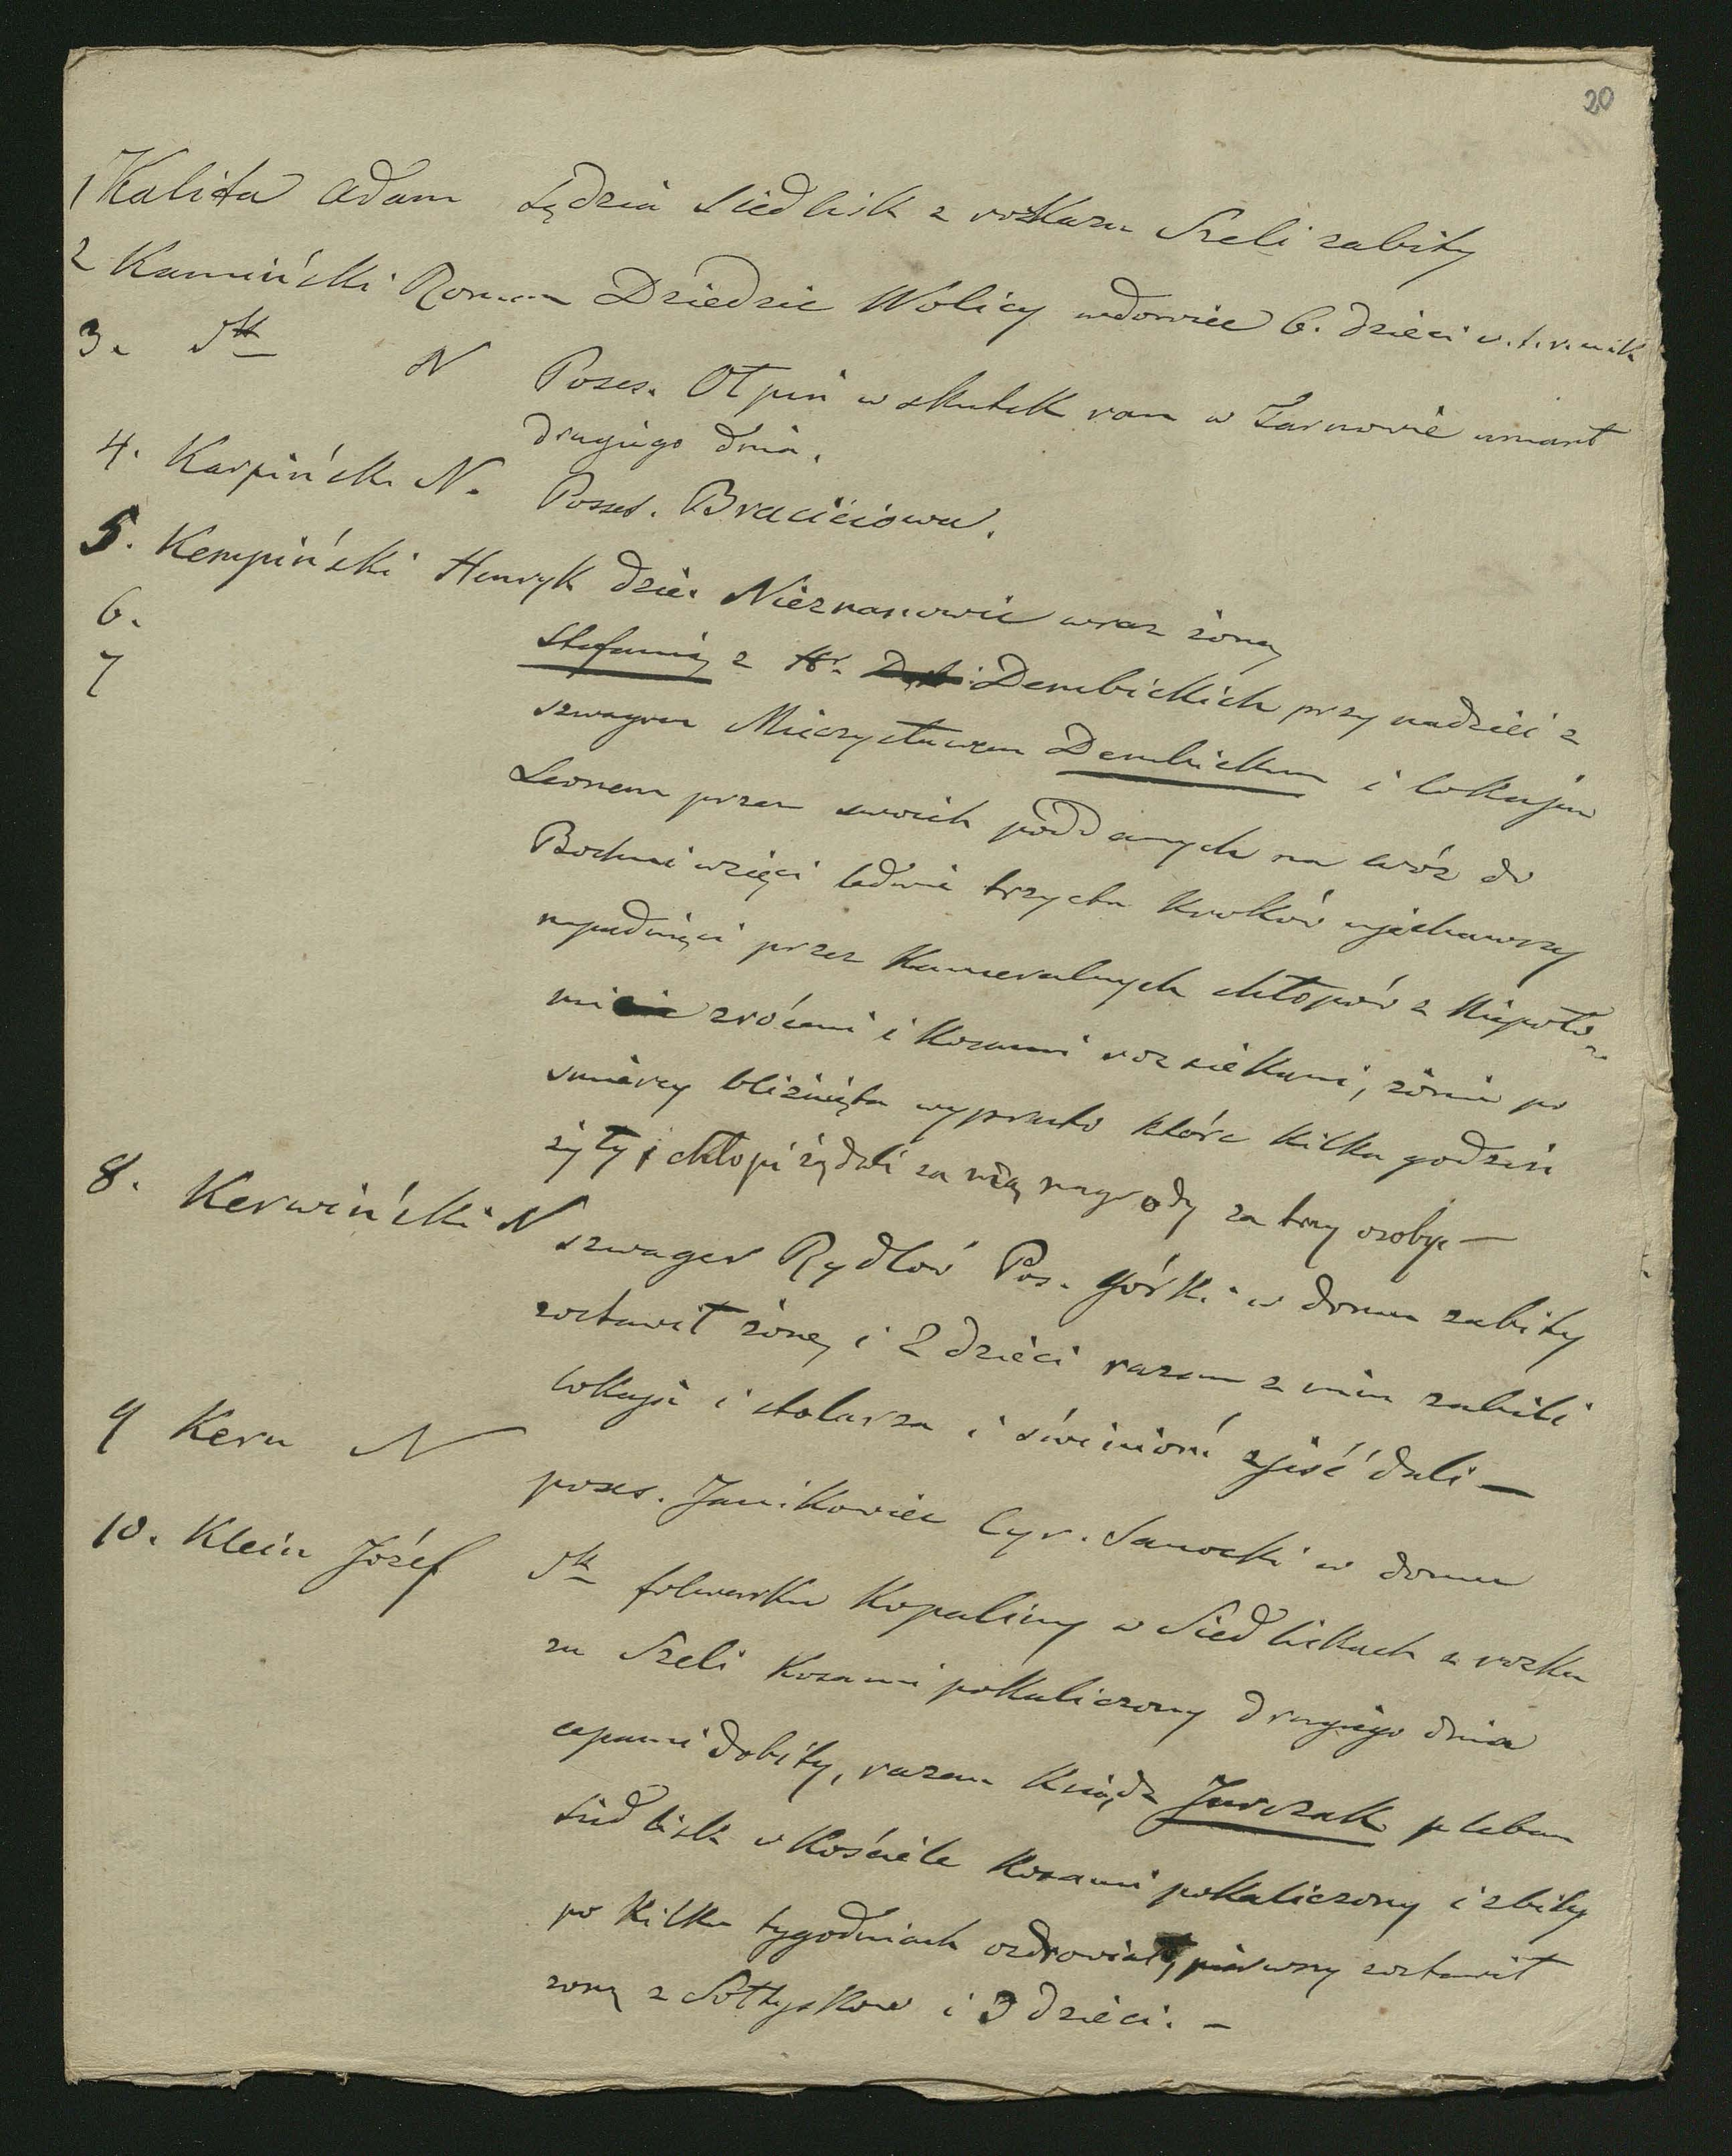 20
1 Kalita Adam Sędzia Siedlisk z rozkazu Szeli zabity
2 Kamiński Roman Dziedzic Wolicy wdowiec 6. dzieci
3. N Poses. Otpin w skutek ran w Tarnowie umarł
drugiego dnia.
4. Karpińsk. N. Posses. Braciejowa.
5. Kempiński Henryk dzie. Nieznanowic wraz żoną
6. Stefanią z Hr. Dembickich przy nadziei z
7 szwagrem Mieczysławem Dembickim i lokajem
Leonem przez swoich poddanych na wóz do
Bochni wzięci ledwie trzysta kroków ujechawszy
napadnięci przez Kameralnych chłopów z Niepoło-
mic zrόceni i kosami rozsiekani, żonie po
śmierci bliźnięta wypruto które kilka godzin
żyły, chłopi żądali za nią nagrody za trzy osoby. —
8. Kerwiński N szwager Rydlów Pos. Górki w domu zabity
zostawił żonę i 2 dzieci razem z nim zabili
lokaja i stolarza i świniom zjeść dali —
9 Kern N poses. Janikowiec Cyr. Sanocki w domu
10. Klein Józef folwarku Kopaliny w Siedliskach z rozka
zu Szeli kosami pokaliczony drugiego dnia
cepami dobity, razem Ksiądz Jurczak pleban
Siedlisk w Kościele kosami pokaliczony i zbity
po kilku tygodniach ozdrowiał, pierwszy zostawił
żonę z Sołtysków i 3 dzieci. —